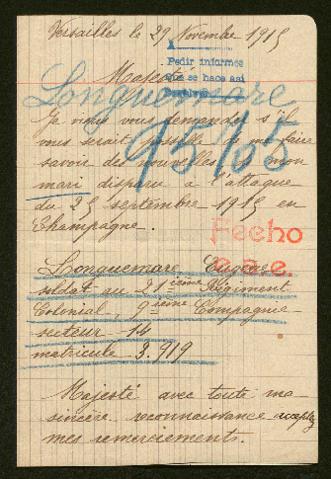 Versailles le 29 Novembre 1915
Pedir informes
que se hace asi
Majesté
Longuemare
Je viens vous demander s'il
vous serait possible de me faire
savoir des nouvelles de mon
mari disparu a l'attaque
du 25 septembre 1915 en
Champagne.
95165
Fecho
Longuemare Eugène
soldat au 21ième Régiment
Colonial, 9ième Compagnie
secteur 14
matricule 3.919
Majesté avec toute ma
sincère reconnaissance acceptez
mes remerciements.